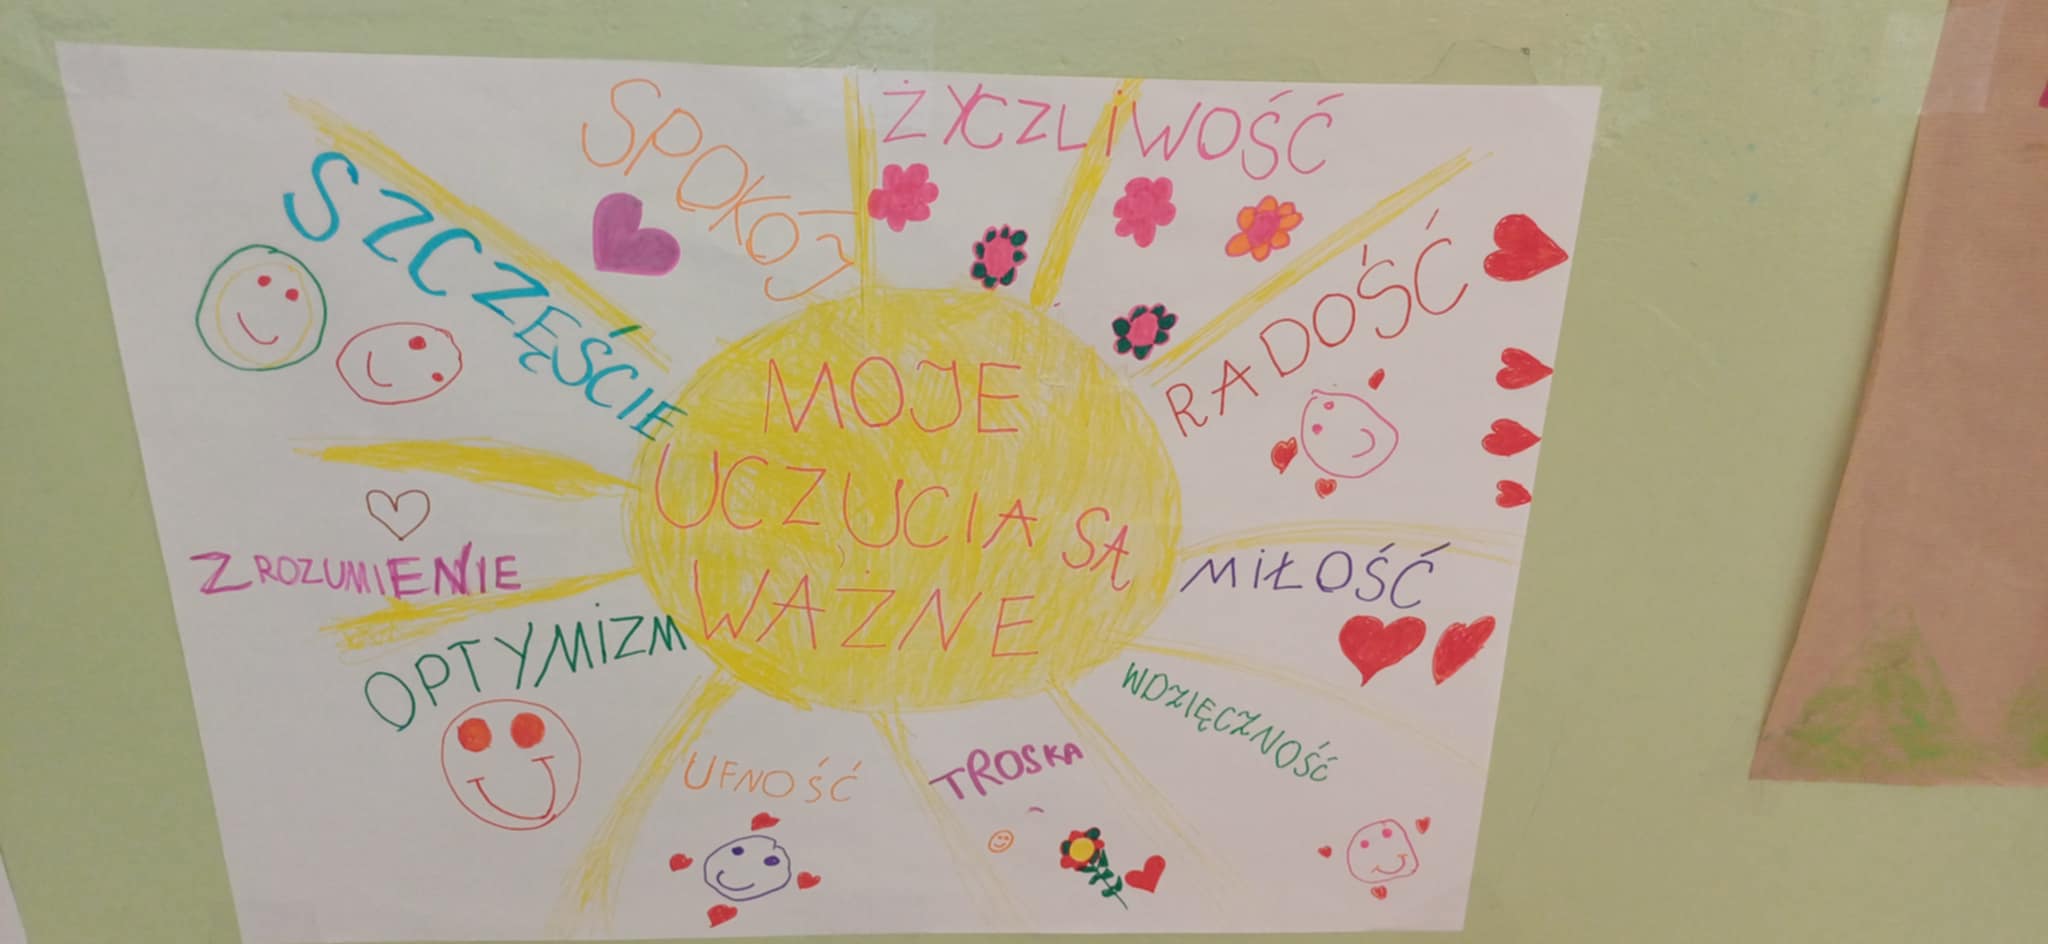 SPOKÓJ
ŻYCZLIWOŚĆ
SZCZĘŚCIE
RADOŚĆ
MOJE
UCZUCIA SĄ
WAŻNE
ZROZUMIENIE
MIŁOŚĆ
OPTYMIZM
WDZIĘCZNOŚĆ
UFNOŚĆ
TROSKA